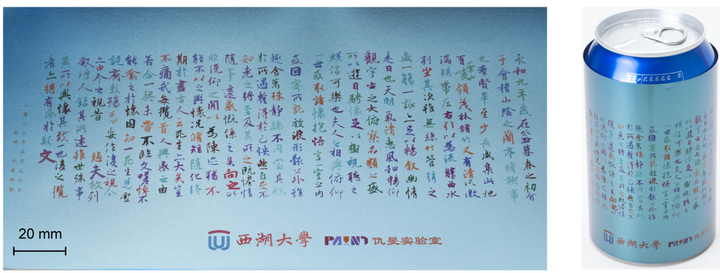 永和九年歲在癸丑暮春之初會
于會稽山陰之蘭亭脩稧事
也羣賢畢至少長咸集此地
有峻領茂林脩竹又有清流激
湍暎帶左右引以為流觴曲水
列坐其次雖無絲竹管弦之
盛一觴一詠亦足以暢敘幽情
是日也天朗氣清惠風和暢仰
觀宇宙之大俯察品類之盛
所以遊目騁懷足以極視聽之
娛信可樂也夫人之相與俯仰
一世或取諸懷抱悟言一室之內
或因寄所託放浪形骸之外雖
趣舍萬殊靜躁不同當其欣
於所遇蹔得於己怏然自足不
知老之將至及其所之既惓情
隨事遷感慨係之矣向之所
欣俛仰之閒以為陳跡猶不
能不以之興懷況脩短隨化終
期於盡古人云死生亦大矣豈
不痛哉每攬昔人興感之由
若合一契未嘗不臨文嗟悼不
能喻之於懷固知一死生為虛
誕齊彭殤為妄作後之視今
亦由今之視昔悲夫故列
敘時人錄其所述雖世殊事
異所以興懷其致一也後之攬
者亦將有感於斯文
20 mm
西湖大學 PAINT 仇旻实验室
西湖大學 PAINT 仇旻实验室